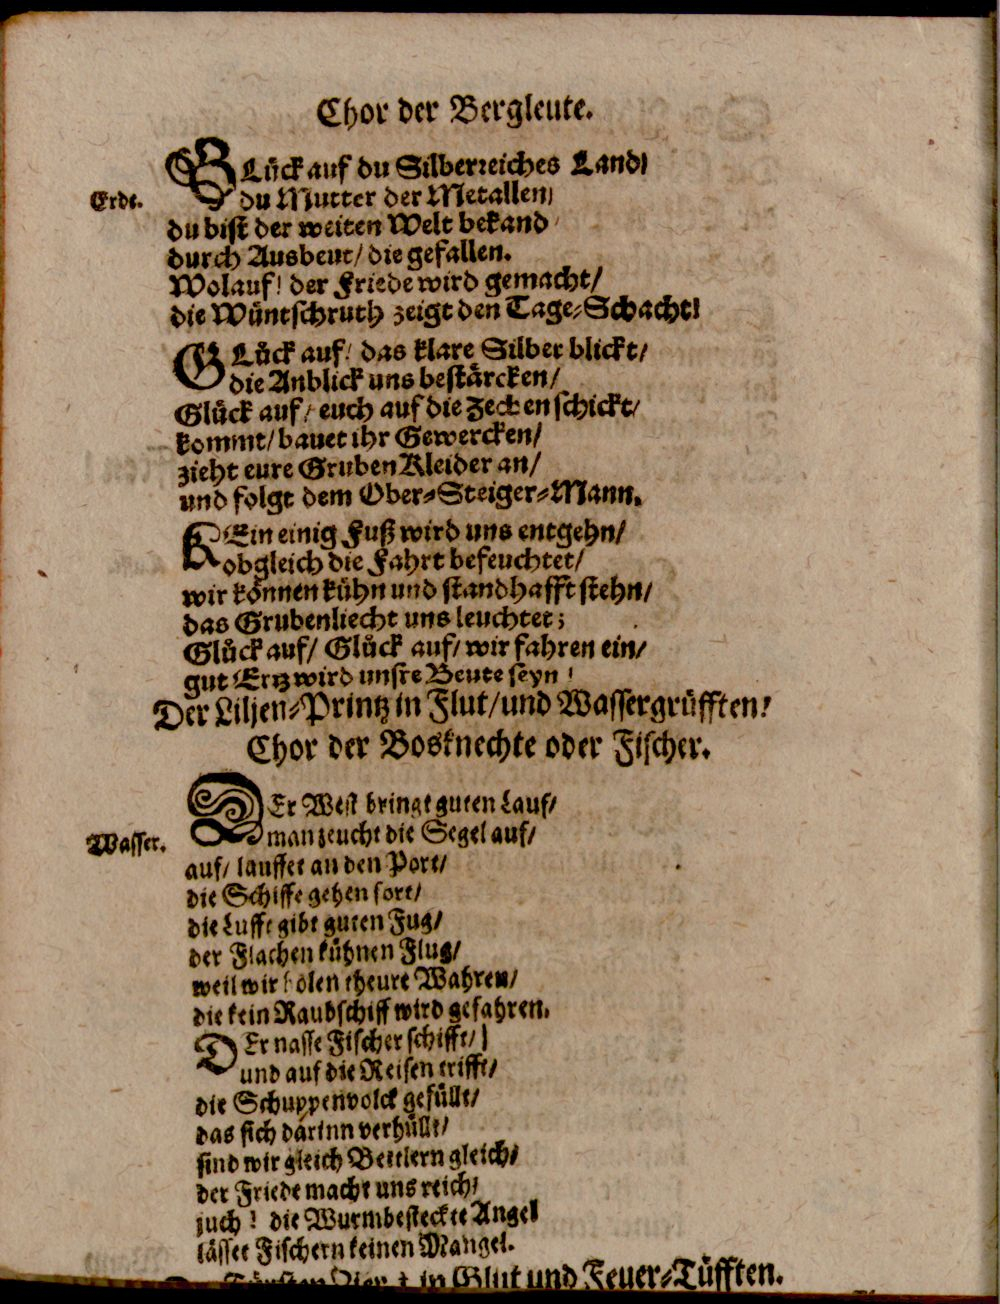 Chor der Bergleute.
GLück auf du Silberreiches Land/
Erde.
du Mutter der Metallen/
du bist der weiten Welt bekand
durch Ausbeut/ die gefallen.
Wolauf! der Friede wird gemacht/
die Wüntschruth zeigt den Tage-Schacht!
GLück auf/ das klare Silber blickt/
die Anblick uns bestärcken/
Glück auf/ euch auf die Zechen schickt/
kommt/ bauet ihr Gewercken/
zieht eure Gruben Kleider an/
und folgt dem Ober-Steiger-Mann.
KEin einig Fuß wird uns entgehn/
obgleich die Fahrt befeuchtet/
wir können kühn und standhafft stehn/
das Grubenliecht uns leuchtet;
Glück auf/ Glück auf/ wir fahren ein/
gut Ertz wird unsre Beute seyn!
Der Liljen-Printz in Flut/ und Wassergrüfften!
Chor der Bosknechte oder Fischer.
DEr West bringt guten Lauf/
Wasser.
man zeucht die Segel auf/
auf/ lauffet an den Port/
die Schiffe gehen fort/
die Lufft gibt guten Fug/
der Flachen kühnen Flug/
weil wir holen theure Wahren/
die kein Raubschiff wird gefahren.
DEr nasse Fischer schifft/
und auf die Reisen trifft/
die Schuppenvolck gefüllt/
das sich darinn verhüllt/
sind wir gleich Bettlern gleich/
der Friede macht uns reich/
juch! die Wurmbesteckte Angel
lässet Fischern keinen Mangel.
in Glut und Feuer-Tüfften.